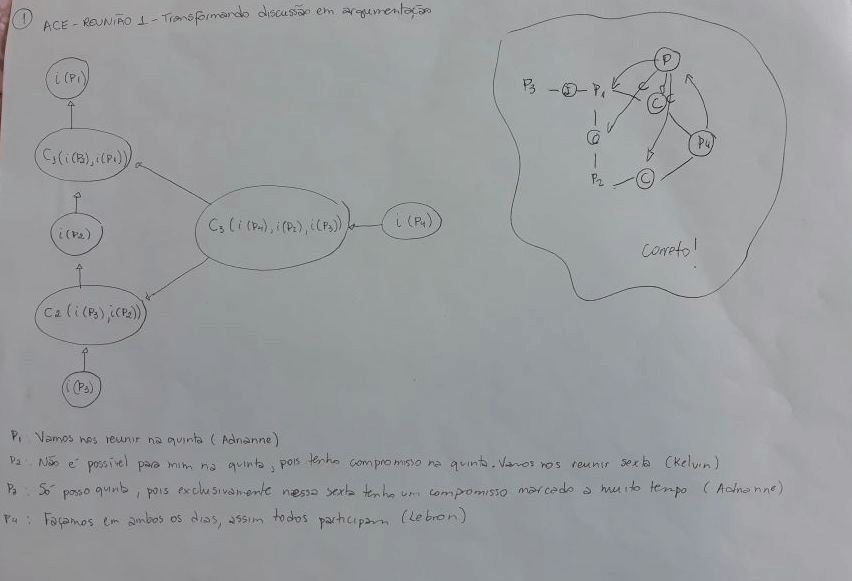 1 ACE - REUNIÃO 1 - Transformando discussão em argumentação
i(P1)
C1(i(P2),i(P1))
i(P2)
C3(i(P4),i(P2),i(P3))
i(P4)
C2(i(P3),i(P2))
i(P3)
P
P3 - I - P1
C
C
C
P4
C
P2
C
Correto!
P1: Vamos nos reunir na quinta (Adrianne)
P2: Não é possível para mim na quinta, pois tenho compromisso na quinta. Vamos nos reunir sexta (Kelvin)
P3: Só posso quinta, pois exclusivamente nessa sexta tenho um compromisso marcado a muito tempo (Adrianne)
P4: Façamos em ambos os dias, assim todos participam (Lebron)